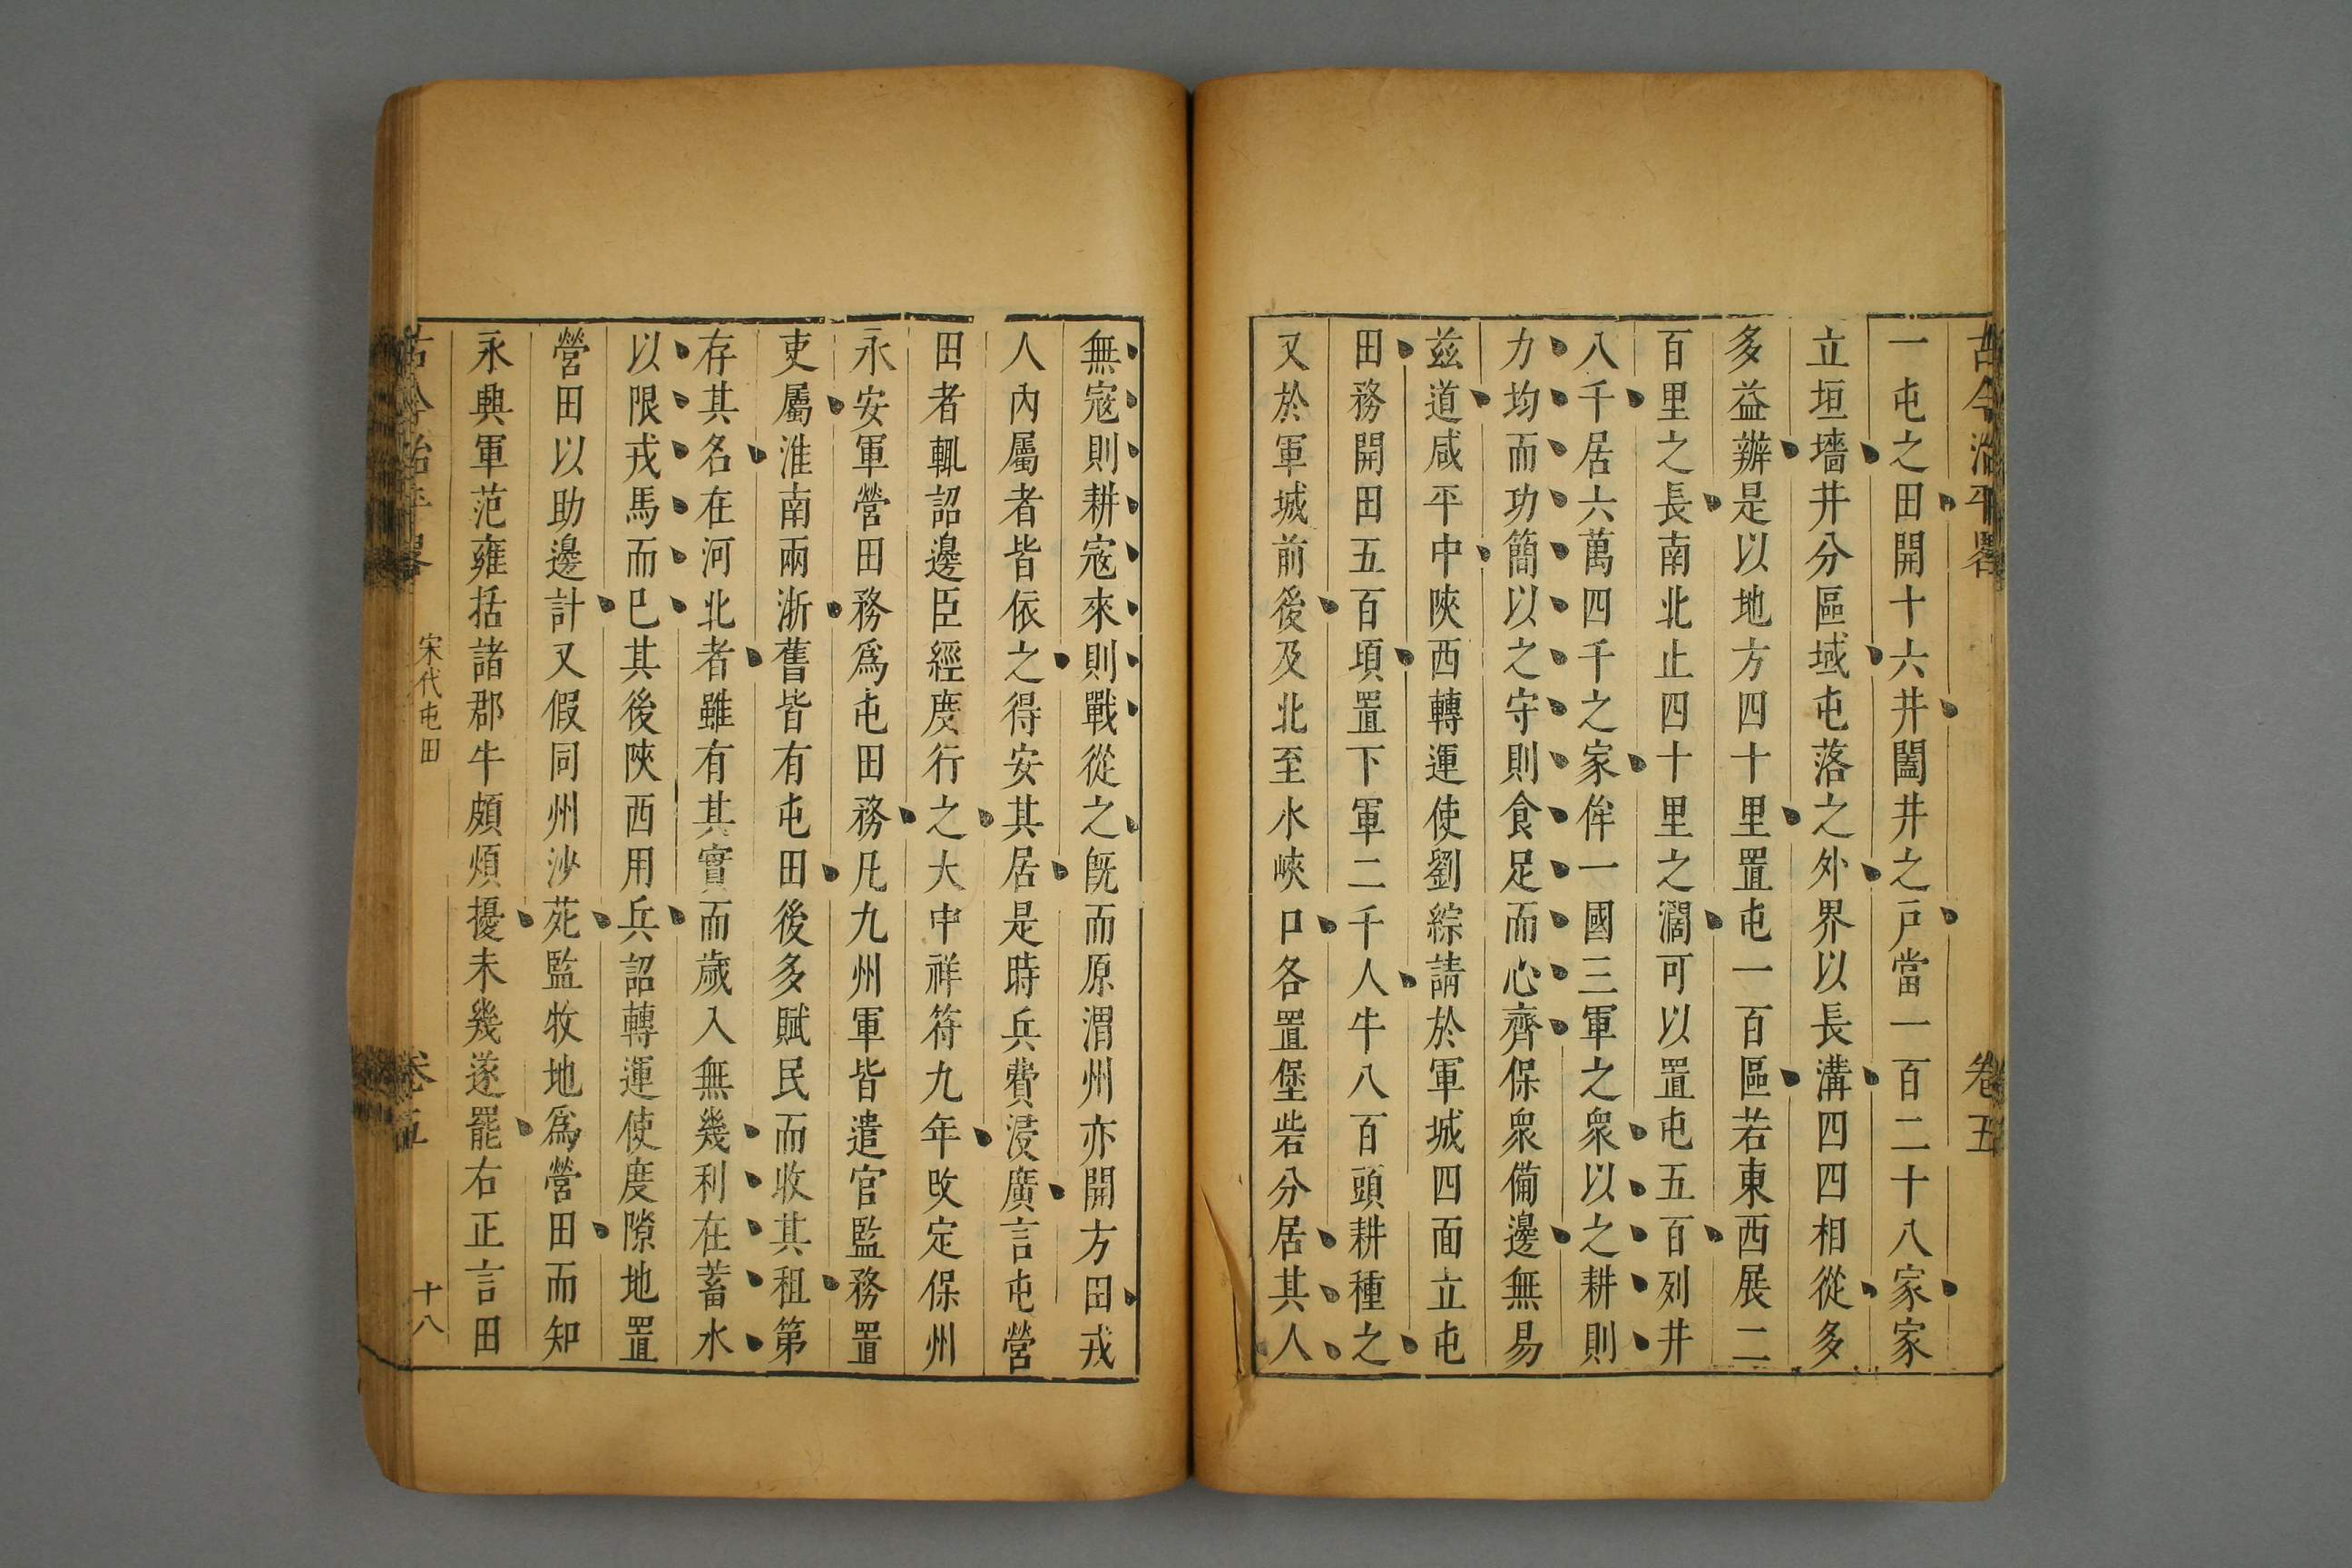 古今治平畧 卷五
一屯之田開十六井闔井之戸當一百二十八家家
立垣墻井分區域屯落之外界以長溝四四相從多
多益辦是以地方四十里置屯一百區若東西展二
百里之長南北止四十里之濶可以置屯五百列井
八千居六萬四千之家侔一國三軍之衆以之耕則
力均而功簡以之守則食足而心齊保衆備邊無易
兹道咸平中陜西轉運使劉綜請於軍城四面立屯
田務開田五百頃置下軍二千人牛八百頭耕種之
又於軍城前後及北至水峽口各置堡砦分居其人
無寇則耕寇來則戰從之既而原渭州亦開方田戎
人內屬者皆依之得安其居是時兵費浸廣言屯營
田者輒詔邊臣經度行之大中祥符九年攺定保州
永安軍營田務爲屯田務凡九州軍皆遣官監務置
吏屬淮南兩浙舊皆有屯田後多賦民而收其租第
存其名在河北者雖有其實而歲入無幾利在蓄水
以限戎馬而已其後陜西用兵詔轉運使度隙地置
營田以助邊計又假同州沙苑監牧地爲營田而知
永興軍范雍括諸郡牛頗煩擾未幾遂罷右正言田
古今治平畧 宋代屯田 卷五 十八